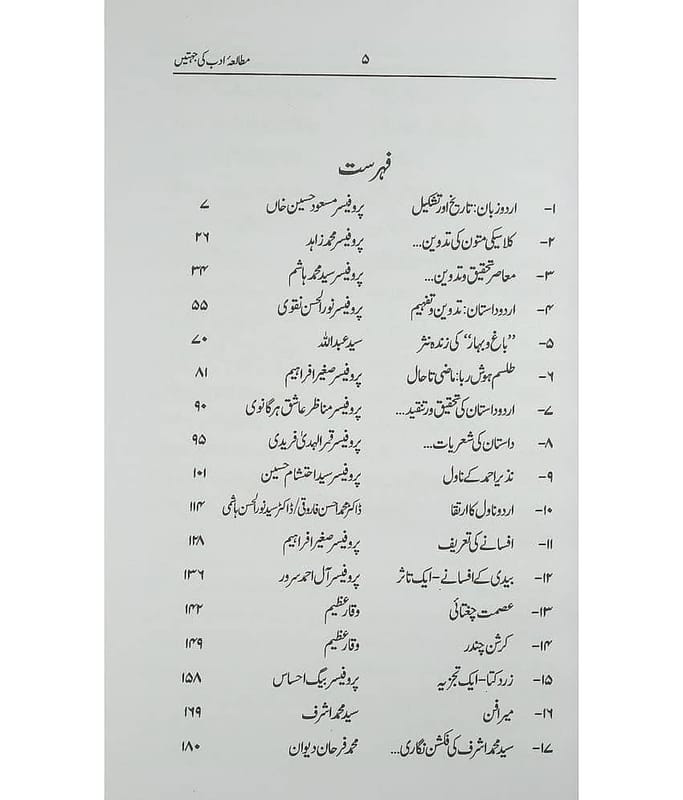 مطالعۂ ادب کی جہتیں ۵
فہرست
۱- اردو زبان: تاریخ اور تشکیل پروفیسر مسعود حسین خاں ۷
۲- کلاسیکی متون کی تدوین... پروفیسر محمد زاہد ۲۶
۳- معاصر تحقیق و تدوین... پروفیسر سید محمد ہاشم ۳۴
۴- اردو داستان: تدوین و تفہیم پروفیسر نور الحسن نقوی ۵۵
۵- ”باغ و بہار“ کی زندہ نثر سید عبداللہ ۷۰
۶- طلسم ہوش ربا: ماضی تا حال پروفیسر صغیر افراہیم ۸۱
۷- اردو داستان کی تحقیق و تنقید... پروفیسر مناظر عاشق ہرگانوی ۹۰
۸- داستان کی شعریات... پروفیسر قمر الہدیٰ فریدی ۹۵
۹- نذیر احمد کے ناول پروفیسر سید احتشام حسین ۱۰۱
۱۰- اردو ناول کا ارتقا ڈاکٹر محمد احسن فاروقی/ڈاکٹر سید نور الحسن ہاشمی ۱۱۴
۱۱- افسانے کی تعریف پروفیسر صغیر افراہیم ۱۲۸
۱۲- بیدی کے افسانے-ایک تاثر پروفیسر آل احمد سرور ۱۳۶
۱۳- عصمت چغتائی وقار عظیم ۱۴۲
۱۴- کرشن چندر وقار عظیم ۱۴۹
۱۵- زرد کتا-ایک تجزیہ پروفیسر بیگ احساس ۱۵۸
۱۶- میرا فن سید محمد اشرف ۱۶۹
۱۷- سید محمد اشرف کی فکشن نگاری... محمد فرحان دیوان ۱۸۰